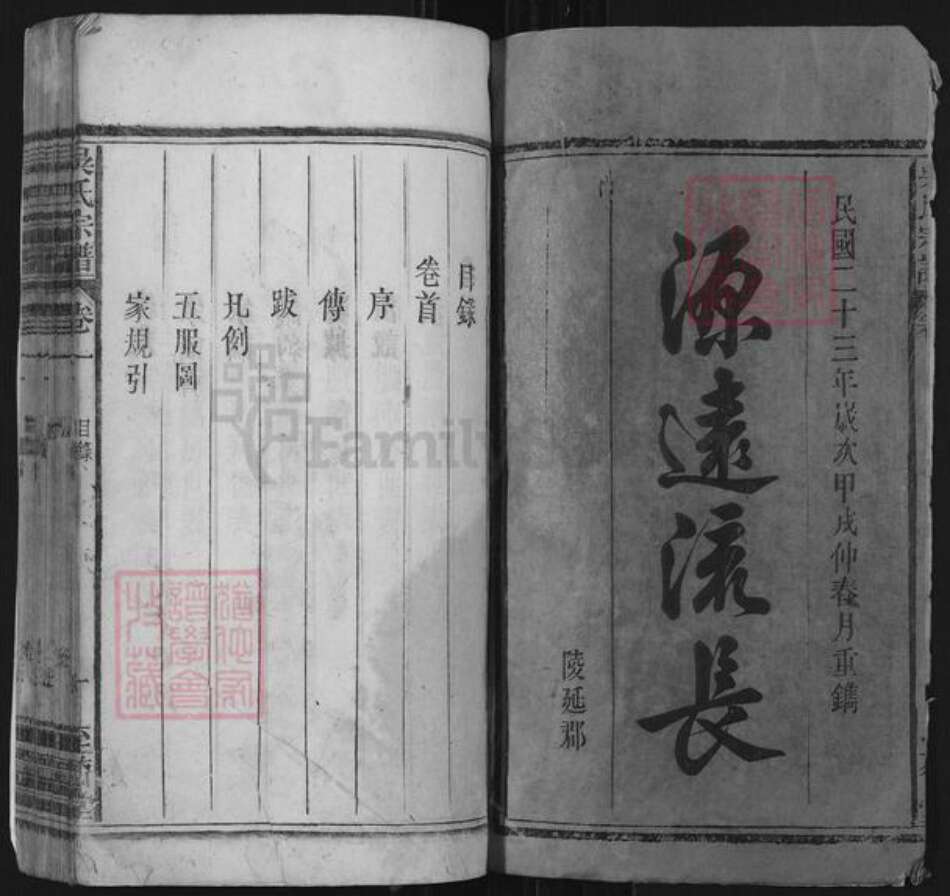 民國二十三年歲次甲戌仲春月重鐫
源遠流長
陵延郡
目錄
卷首
序
傳
跋
凡例
五服圖
家規引
吳氏宗譜
卷一
目錄
一
譜學會
FamilySearch